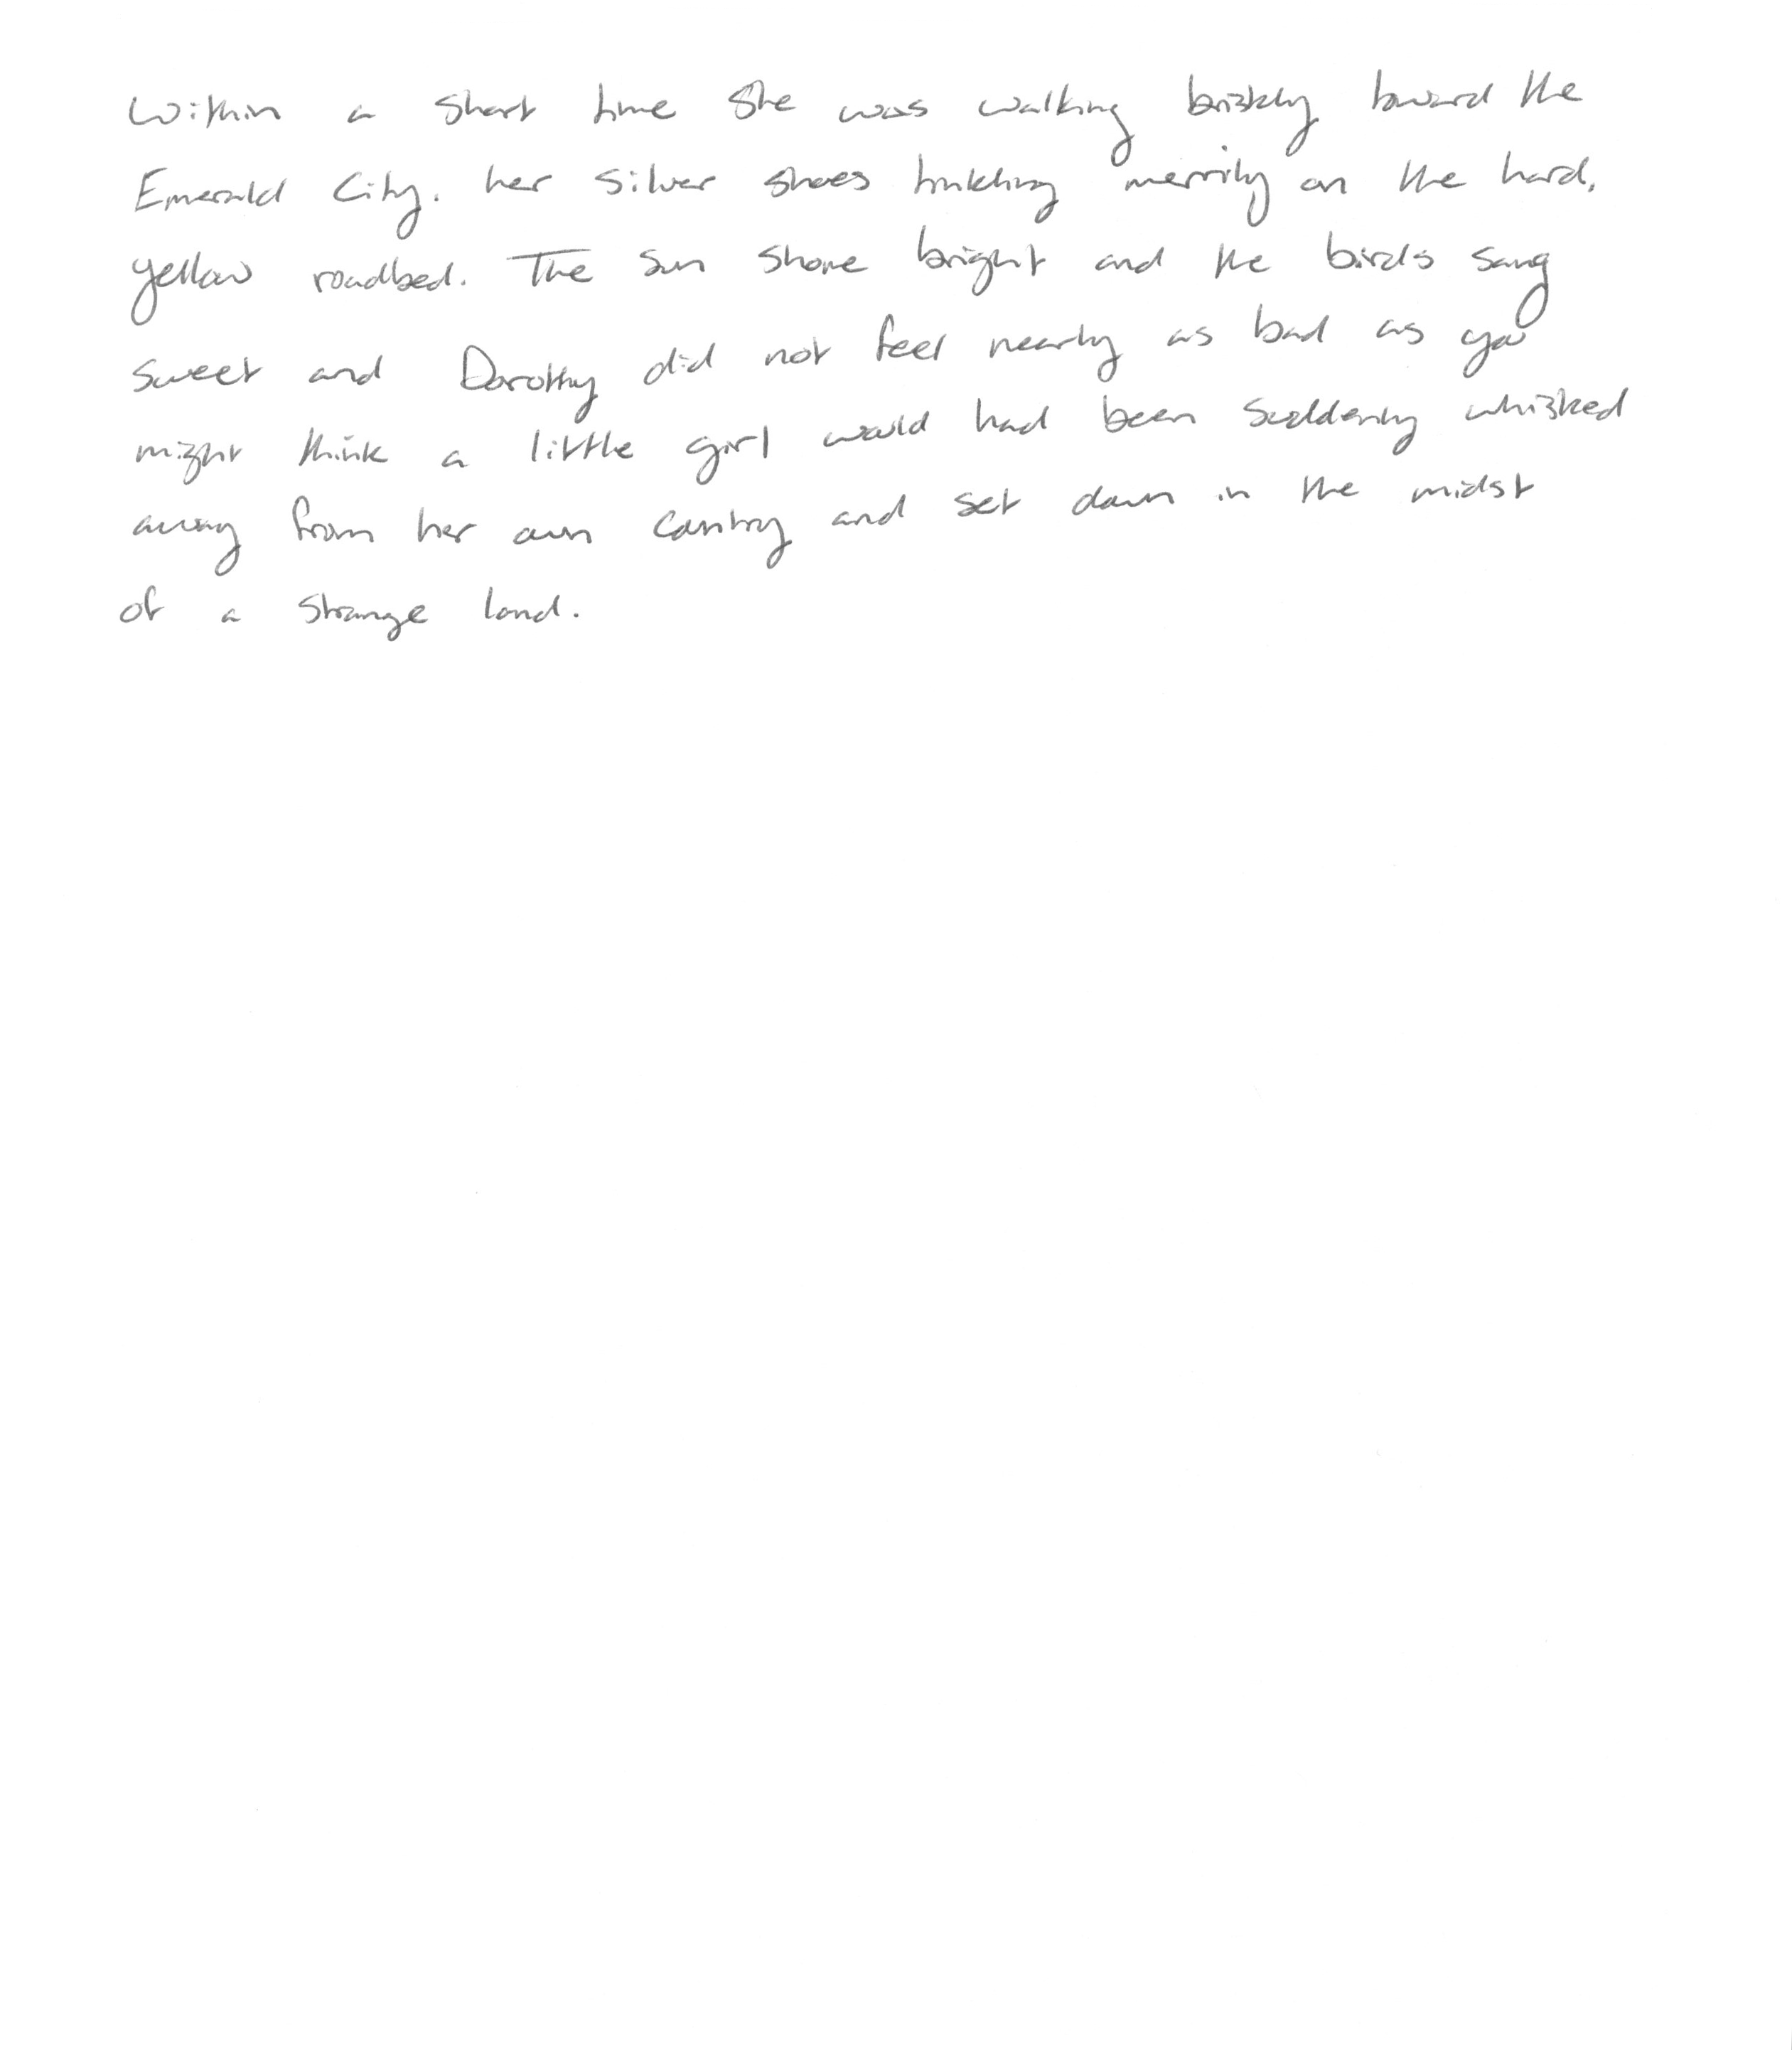 Within a short time she was walking briskly toward the
Emerald City, her silver shoes tinkling merrily on the hard,
yellow roadbed. The sun shone bright and the birds sang
sweet and Dorothy did not feel nearly as bad as you
might think a little girl would had been suddenly whisked
away from her own country and set down in the midst
of a strange land.